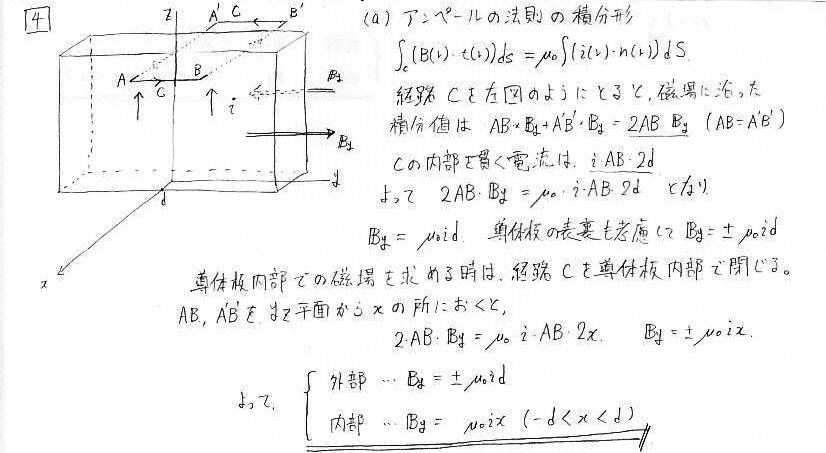 4
(a) アンペールの法則の積分形
∫c(B(r)・t(r))ds = μ₀∫(i(r)・n(r))dS
経路 C を左図のようにとると、磁場に沿った
積分値は AB×By+A'B'・By = 2AB By (AB=A'B')
Cの内部を貫く電流は、i・AB・2d
よって 2AB・By = μ₀・i・AB・2d となり
By = μ₀id 導体板の表裏も考慮して By = ± μ₀id
導体板内部での磁場を求める時は、経路 C を導体板内部で閉じる。
AB, A'B' を yz平面から x の所におくと、
2・AB・By = μ₀・i・AB・2x. By = ± μ₀ix.
よって、
外部 … By = ± μ₀id
内部 … By = μ₀ix (-d<x<d)
z
A'
C
B'
A
B
C
i
By
By
y
d
x